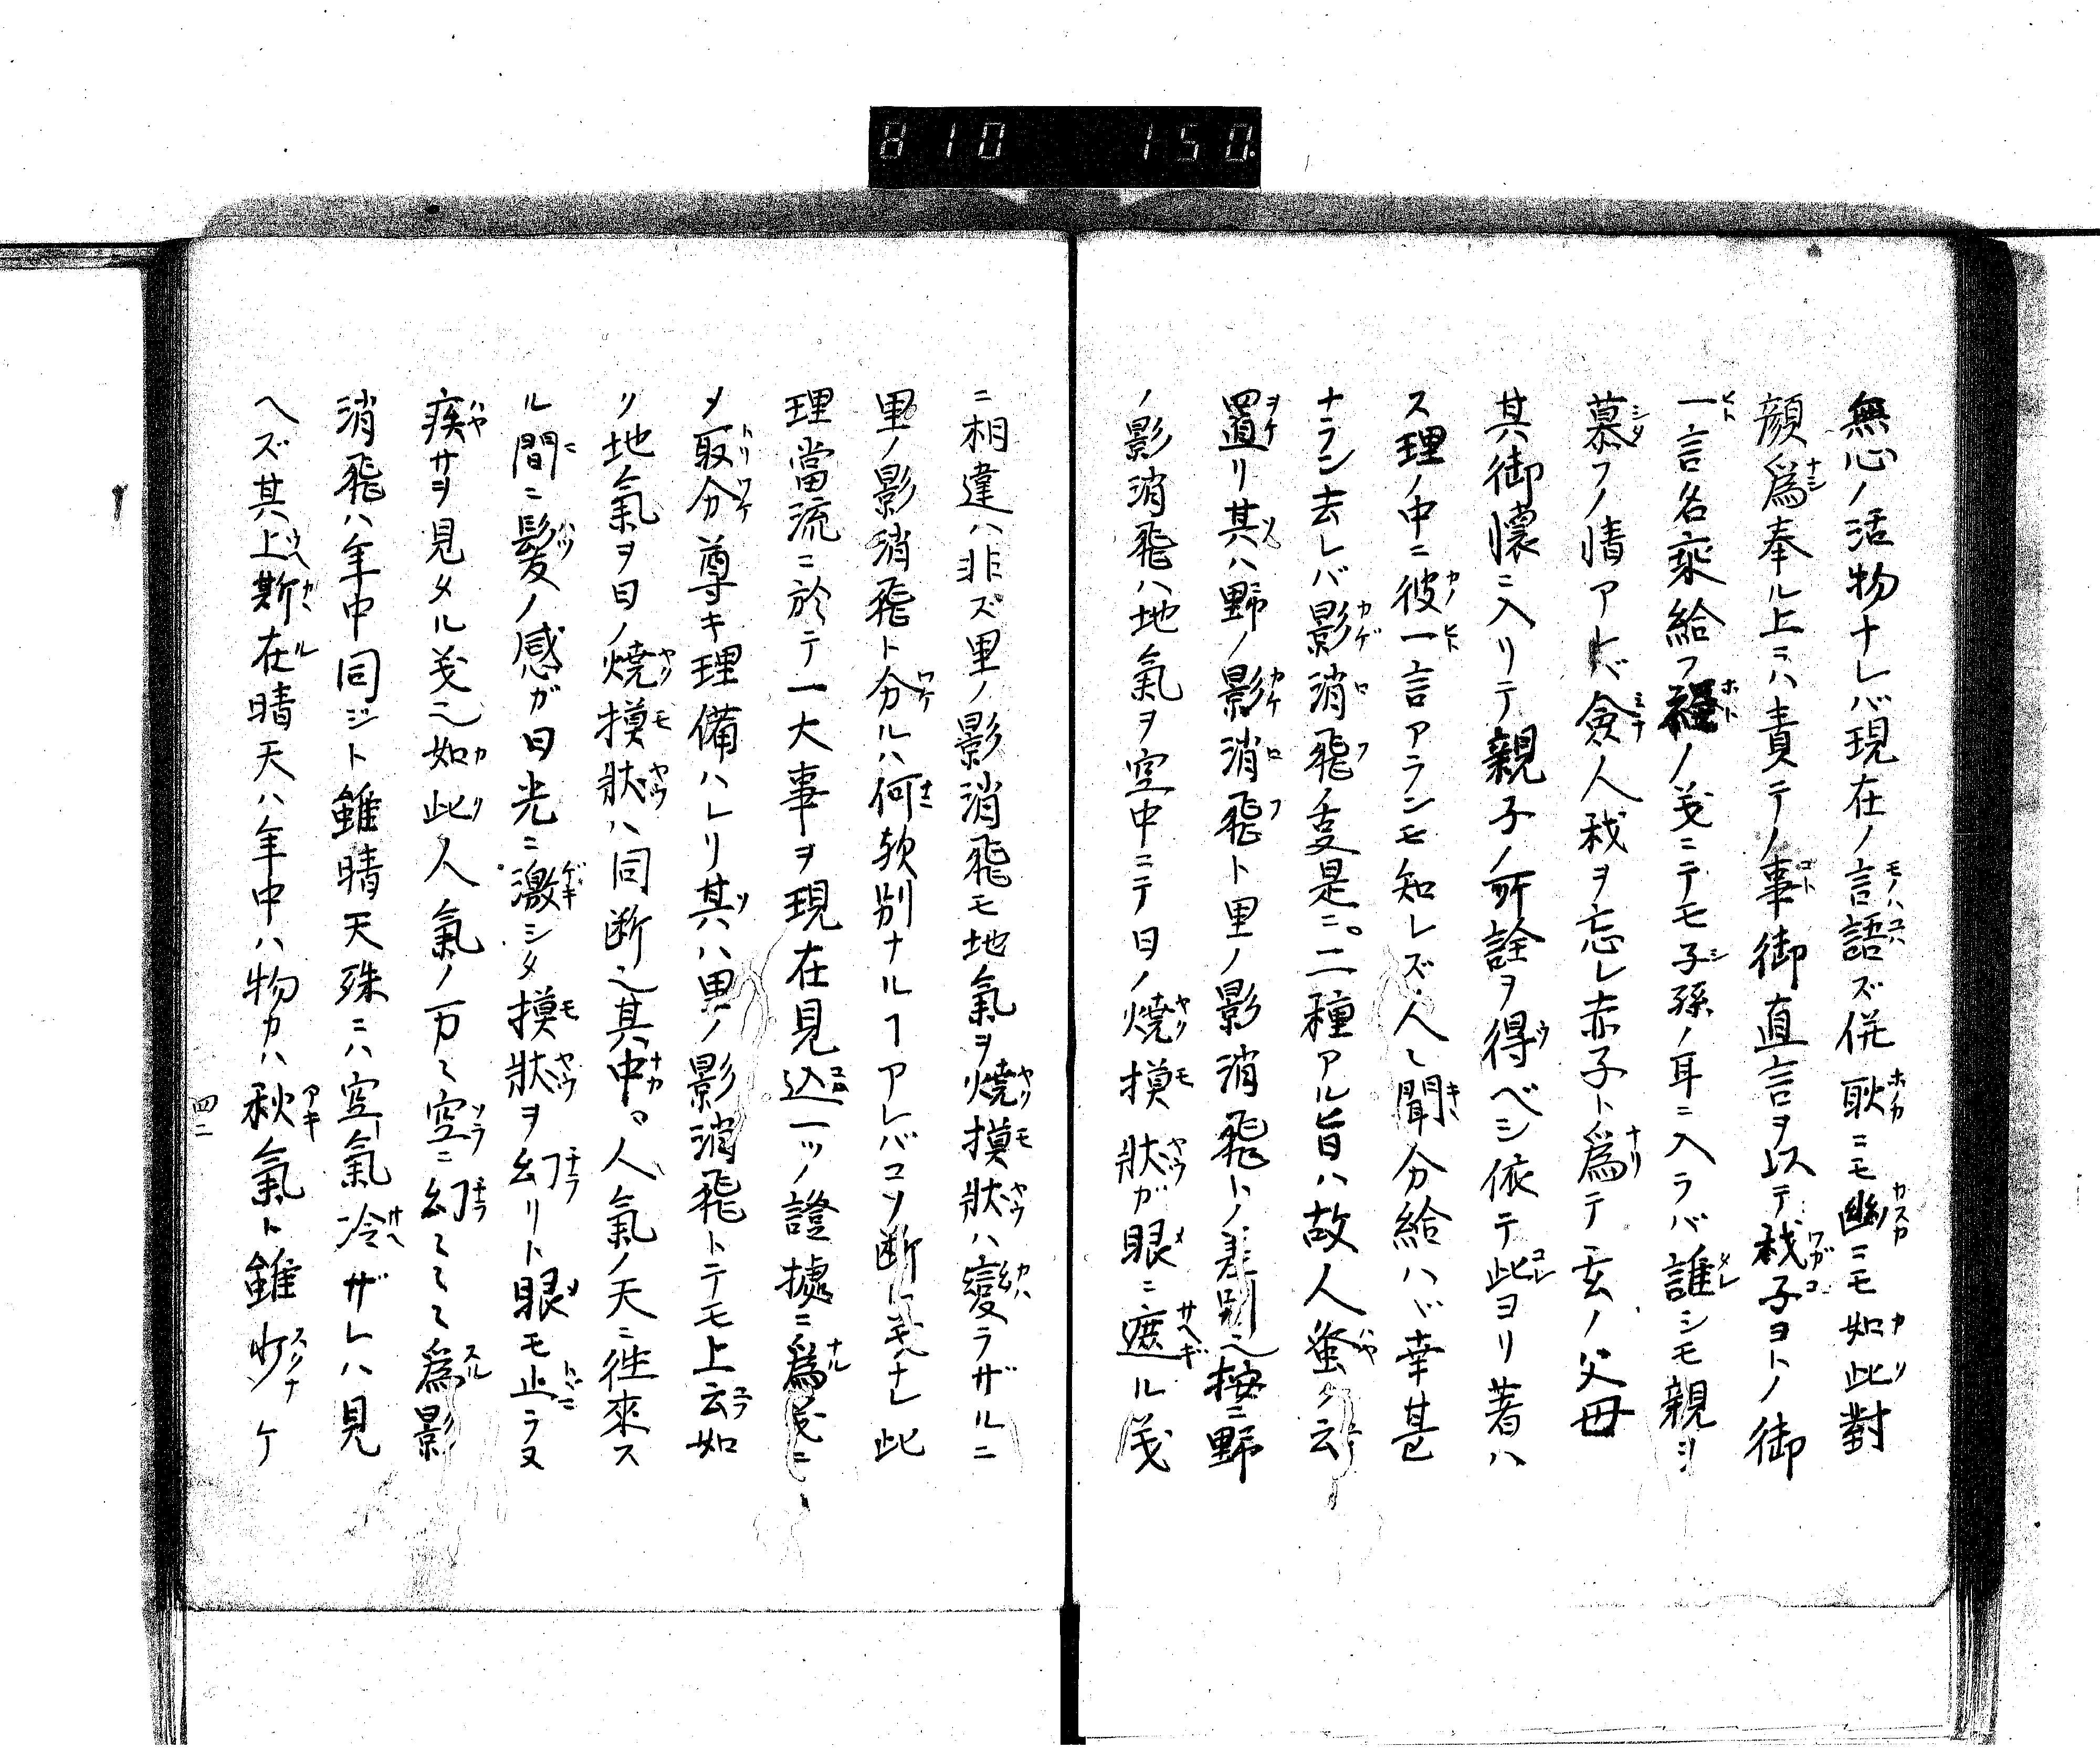 810 150.
無心ノ活物ナレバ現在ノ言語ズ併耿ニモ幽ニモ如此對
顔爲奉ル上ニハ責テノ事御直言ヲ以テ我子ヨトノ御
一言名乘給フ程ノ義ニテモ子孫ノ耳ニ入ラバ誰シモ親ヲ
慕フノ情アレバ僉人我ヲ忘レ赤子ト爲テ玄ノ父母
其御懷ニ入リテ親子ノ所詮ヲ得ベシ依テ此ヨリ著ハ
ス理ノ中ニ彼一言アランモ知レズ人々聞分給ハヾ幸甚
ナラン去レバ影消飛ノ叓是ニ二種アル旨ハ故人蚤ク云
置リ其ハ野ノ影消飛ト里ノ影消飛トノ差別也按ニ野
ノ影消飛ハ地氣ヲ空中ニテ日ノ燒摸狀ガ眼ニ遮ル義
ニ相違ハ非ズ里ノ影消飛モ地氣ヲ燒摸狀ハ變ラザルニ
里ノ影消飛ト分ルハ何欤別ナルヿアレバコソ断ル義ナレ此
理當流ニ於テ一大事ヲ現在見込一ツノ證據ニ爲義ニ
〆取分尊キ理備ハレリ其ハ里ノ影消飛トテモ上云如
リ地氣ヲ日ノ燒摸狀ハ同断也其中人氣ノ天ニ往來ス
ル間ニ髪ノ感ガ日光ニ激シタ摸狀ヲ幻リト眼モ止ラヌ
疾サヲ見タル義也如此人氣ノ万々空ニ幻々々々爲影
消飛ハ年中同ジト雖晴天殊ニハ空氣冷ザレハ見
ヘズ其上斯在晴天ハ年中ハ物カハ秋氣ト雖少ナケ
四二